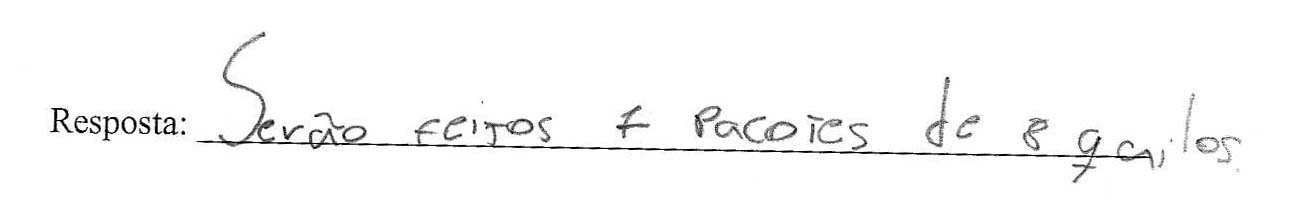 Resposta: Serão feitos 7 Pacotes de 8 quilos.